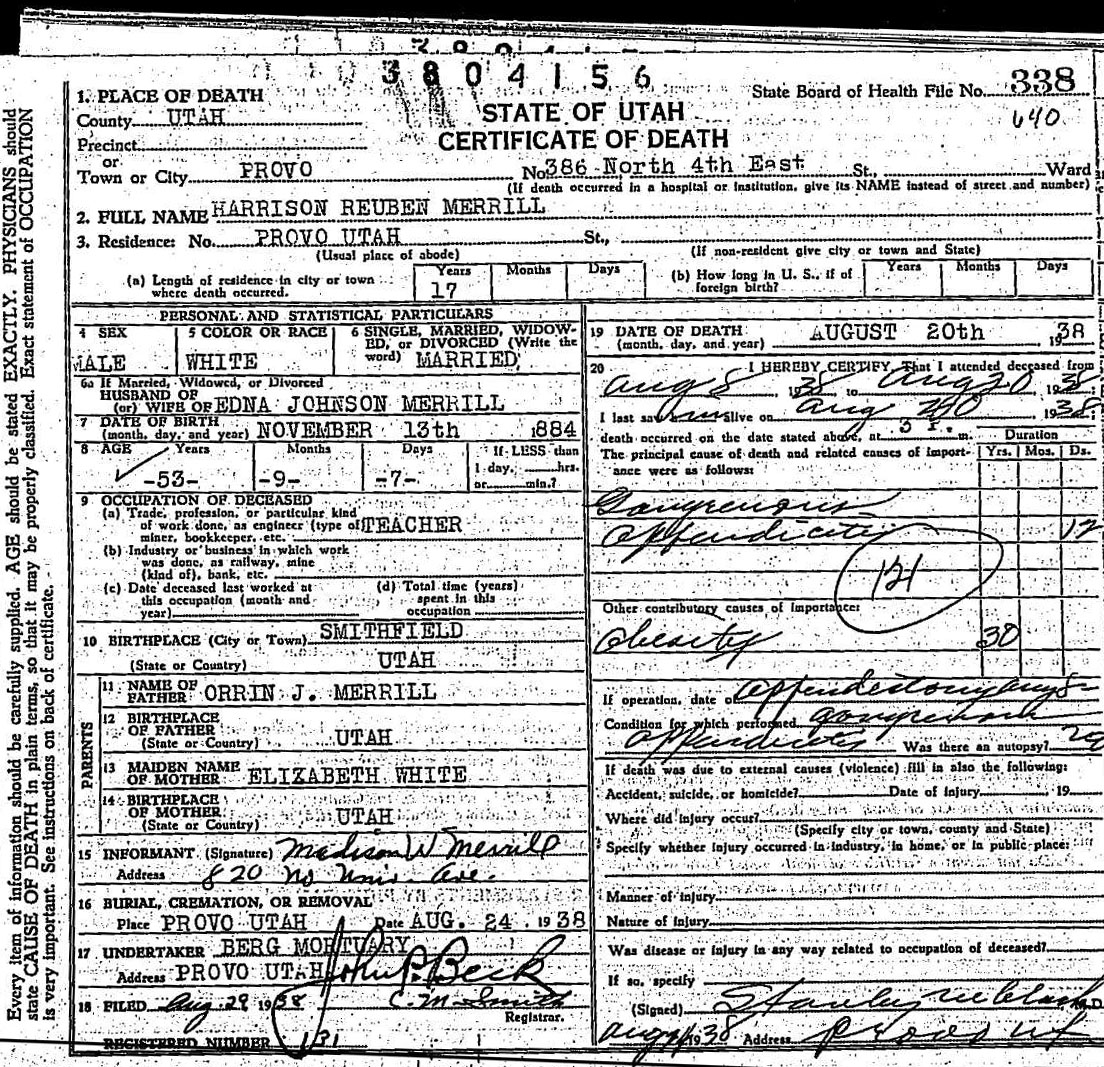 3804156
State Board of Health File No. 338
640
1. PLACE OF DEATH
County UTAH
STATE OF UTAH
CERTIFICATE OF DEATH
Precinct
or
Town or City PROVO No. 386 North 4th East St., Ward
(If death occurred in a hospital or institution, give its NAME instead of street and number)
2. FULL NAME HARRISON REUBEN MERRILL
3. Residence: No. PROVO UTAH St.,
(Usual place of abode) (If non-resident give city or town and State)
(a) Length of residence in city or town where death occurred. Years 17 Months Days
(b) How long in U. S., if of foreign birth? Years Months Days
PERSONAL AND STATISTICAL PARTICULARS
4 SEX MALE
5 COLOR OR RACE WHITE
6 SINGLE, MARRIED, WIDOWED, OR DIVORCED (Write the word) MARRIED
6a If Married, Widowed, or Divorced
HUSBAND OF
(or) WIFE OF EDNA JOHNSON MERRILL
7 DATE OF BIRTH
(month, day, and year) NOVEMBER 13th 1884
8 AGE Years Months Days If LESS than
-53- -9- -7- 1 day, hrs.
or min.?
9 OCCUPATION OF DECEASED
(a) Trade, profession, or particular kind
of work done, as engineer (type of TEACHER
miner, bookkeeper, etc.
(b) Industry or business in which work
was done, as railway, mine
(kind of), bank, etc.
(c) Date deceased last worked at
this occupation (month and
year)
(d) Total time (years)
spent in this
occupation
10 BIRTHPLACE (City or Town) SMITHFIELD
(State or Country) UTAH
PARENTS
11 NAME OF
FATHER ORRIN J. MERRILL
12 BIRTHPLACE
OF FATHER
(State or Country) UTAH
13 MAIDEN NAME
OF MOTHER ELIZABETH WHITE
14 BIRTHPLACE
OF MOTHER
(State or Country) UTAH
15 INFORMANT (Signature) Madison W Merrill
Address 820 No Univ. Ave.
16 BURIAL, CREMATION, OR REMOVAL
Place PROVO UTAH Date AUG. 24 1938
17 UNDERTAKER BERG MORTUARY
Address PROVO UTAH John P. Beck
18 FILED Aug. 29 1938 C. M. Smith
Registrar.
REGISTERED NUMBER 131
19 DATE OF DEATH AUGUST 20th 1938
(month, day, and year)
20 I HEREBY CERTIFY, That I attended deceased from
Aug 8 1938 to Aug 20 1938
I last saw him alive on Aug 20 1938
death occurred on the date stated above, at 5 P. m.
The principal cause of death and related causes of importance were as follows:
Duration
Yrs. Mos. Ds.
Gangrenous
appendicitis 12
121
Other contributory causes of importance:
obesity 30
If operation, date of appendectomy Aug 8
Condition for which performed gangrenous
appendicitis Was there an autopsy? no
If death was due to external causes (violence) fill in also the following:
Accident, suicide, or homicide? Date of injury 19
Where did injury occur?
(Specify city or town, county and State)
Specify whether injury occurred in industry, in home, or in public place:
Manner of injury
Nature of injury
Was disease or injury in any way related to occupation of deceased?
If so, specify
(Signed) Stanley M. D.
Aug 1938 Address Provo Ut
Every item of information should be carefully supplied. AGE should be stated EXACTLY. PHYSICIANS should
state CAUSE OF DEATH in plain terms, so that it may be properly classified. Exact statement of OCCUPATION
is very important. See instructions on back of certificate.